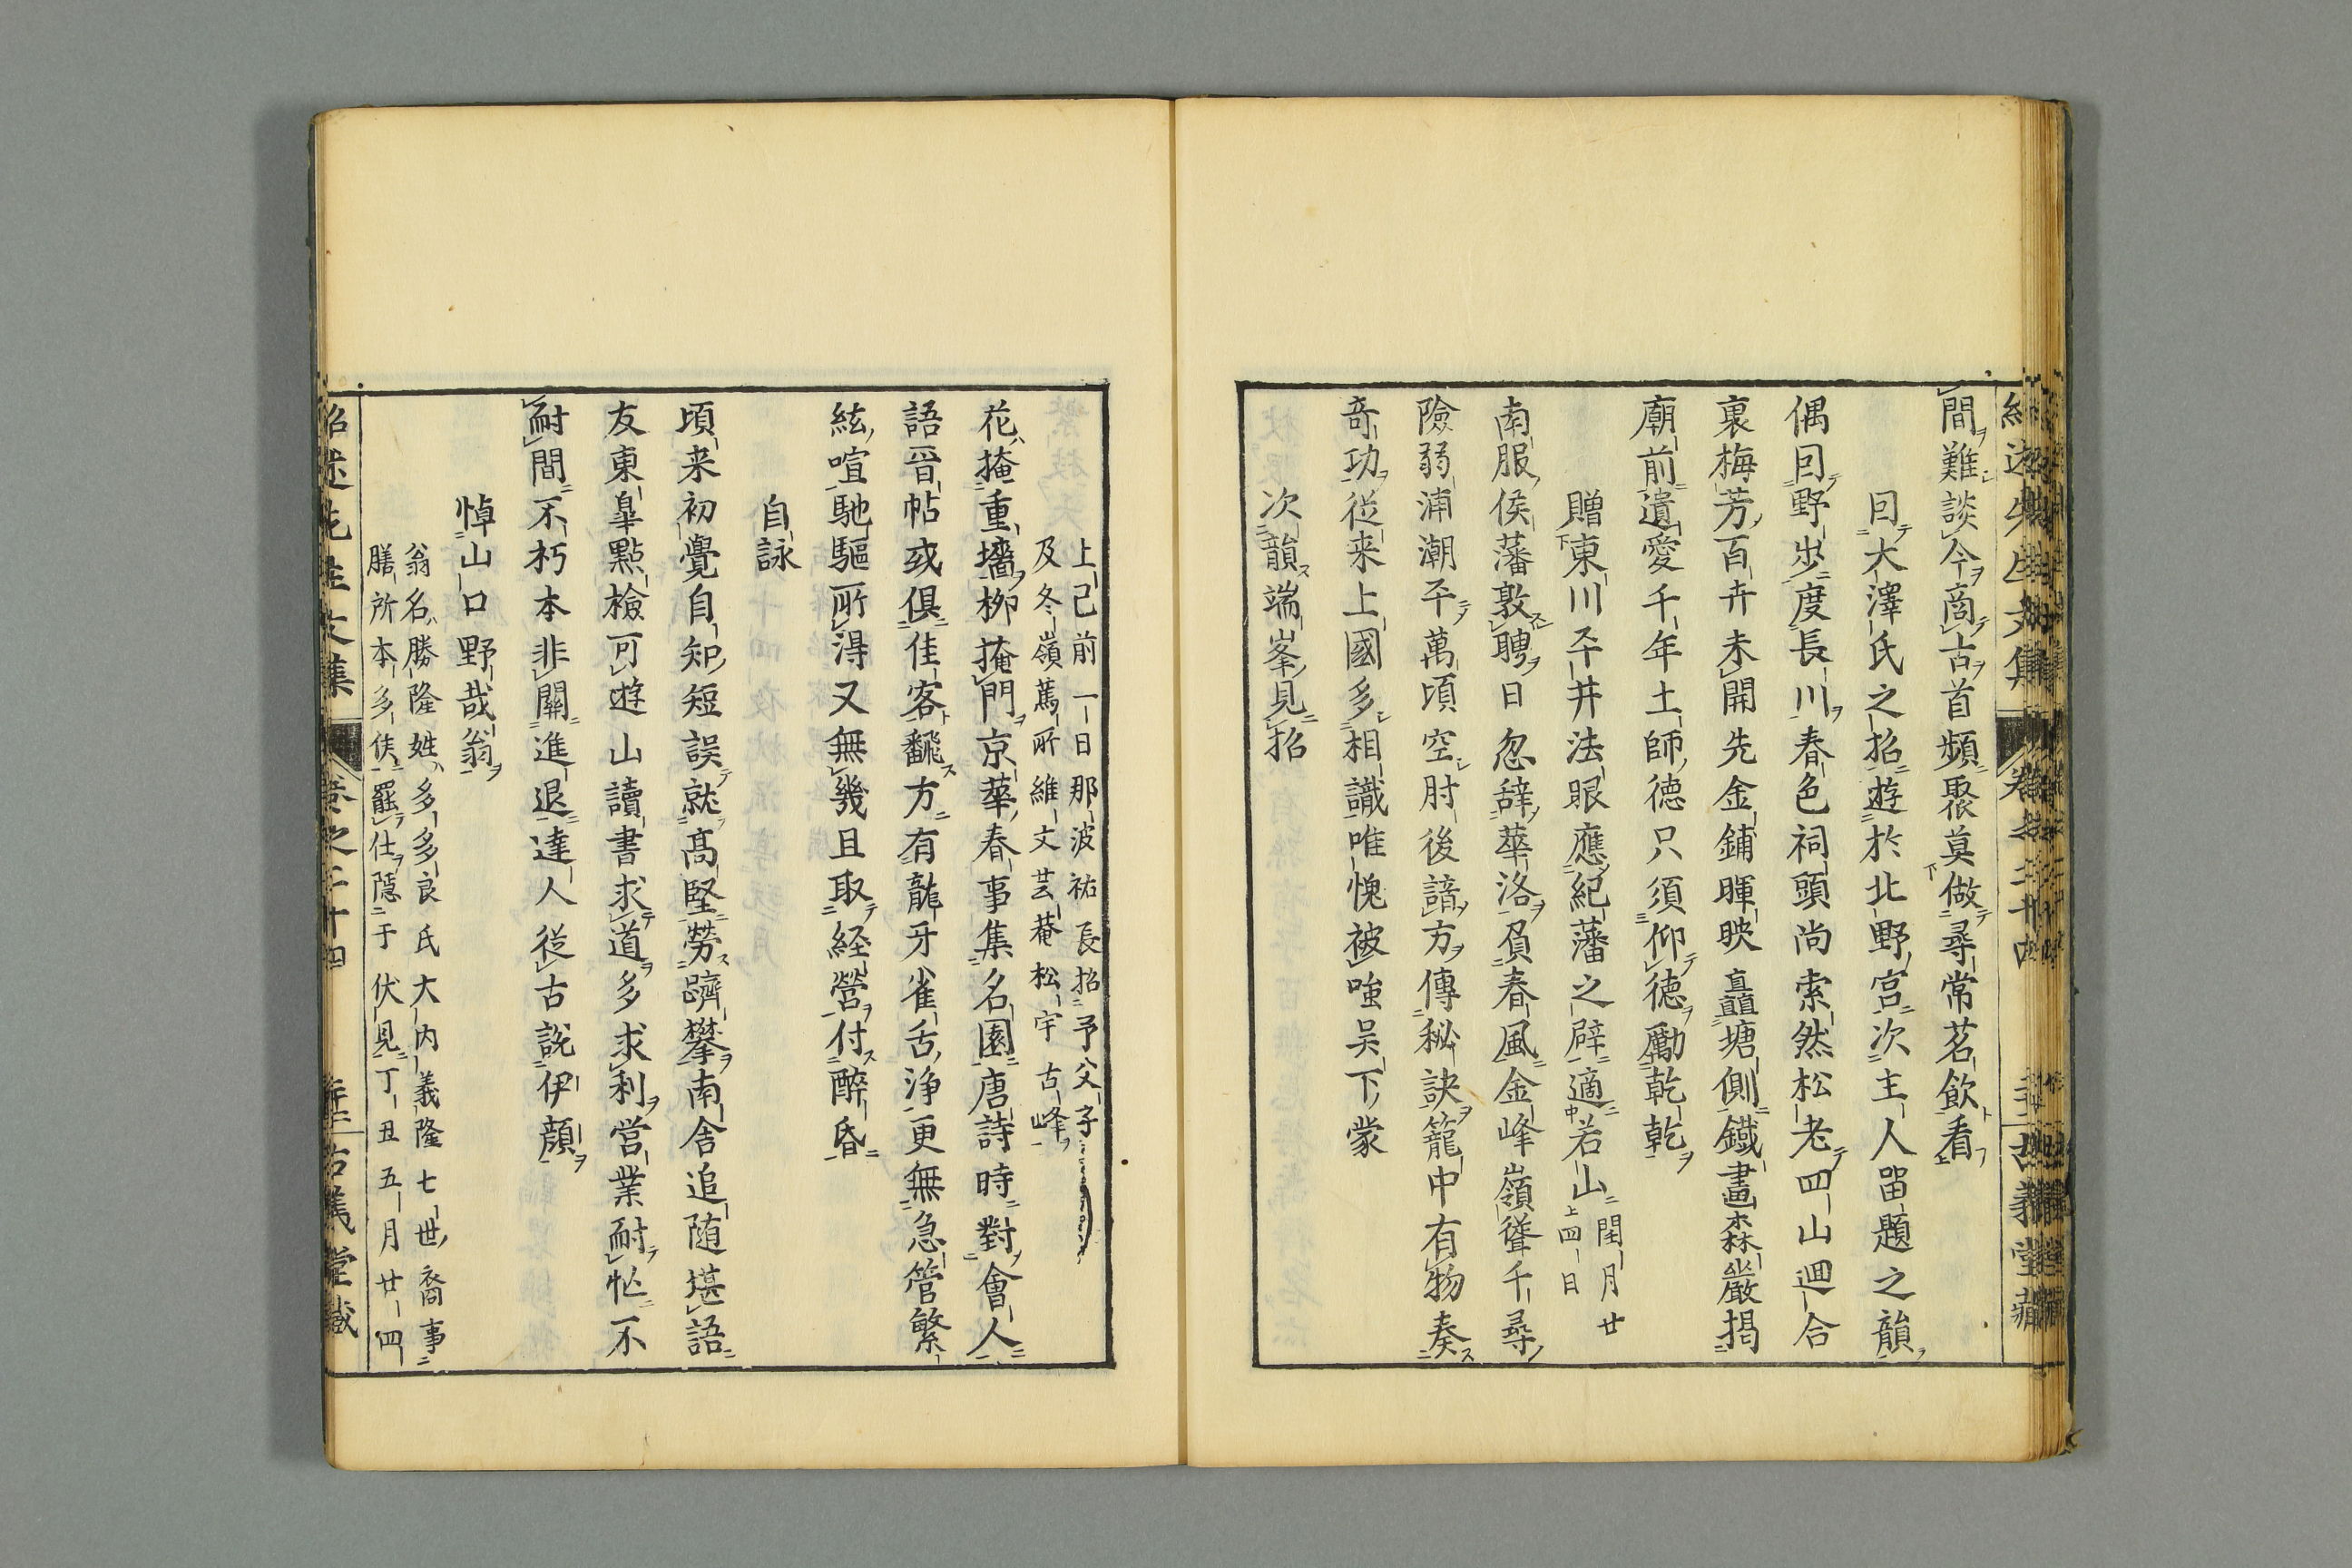 間難談今商古首頻聚莫做尋常茗飲看
因大澤氏之招遊於北野宮次主人留題之韻
偶回野步度長川春色祠頭尚索然松老四山廻合
裏梅芳百卉未開先金鋪暉映矗塘側鐵畫森嚴揭
廟前遺愛千年土師德只須仰德勵乾乾
贈東川平井法眼應紀藩之辟適若山
閏月廿
四日
南服侯藩敦聘日忽辭華洛負春風金峰嶺聳千尋
險弱浦潮平萬頃空肘後諳方傳秘訣籠中有物奏
奇功從来上國多相識唯愧被嗤吳下蒙
次韻端峯見招
上巳前一日那波祐長招予父子
及冬嶺蔦所維文芸菴松宇古峰
花掩重墻栁掩門京華春事集名園唐詩時對會人
語晉帖或俱佳客飜方有龍牙雀舌净更無急管繁
絃喧馳驅所得又無幾且取経營付醉昏
自詠
頃来初覺自知短誤就高堅勞躋攀南舍追随堪語
友東皐點檢可遊山讀書求道多求利営業耐忙不
耐間不朽本非關進退達人從古說伊顔
悼山口野哉翁
翁名勝隆姓多多良氏大内義隆七世裔事
膳所本多侯罷仕隱于伏見丁丑五月廿四
紹述先生文集 卷之二十四 古義堂藏